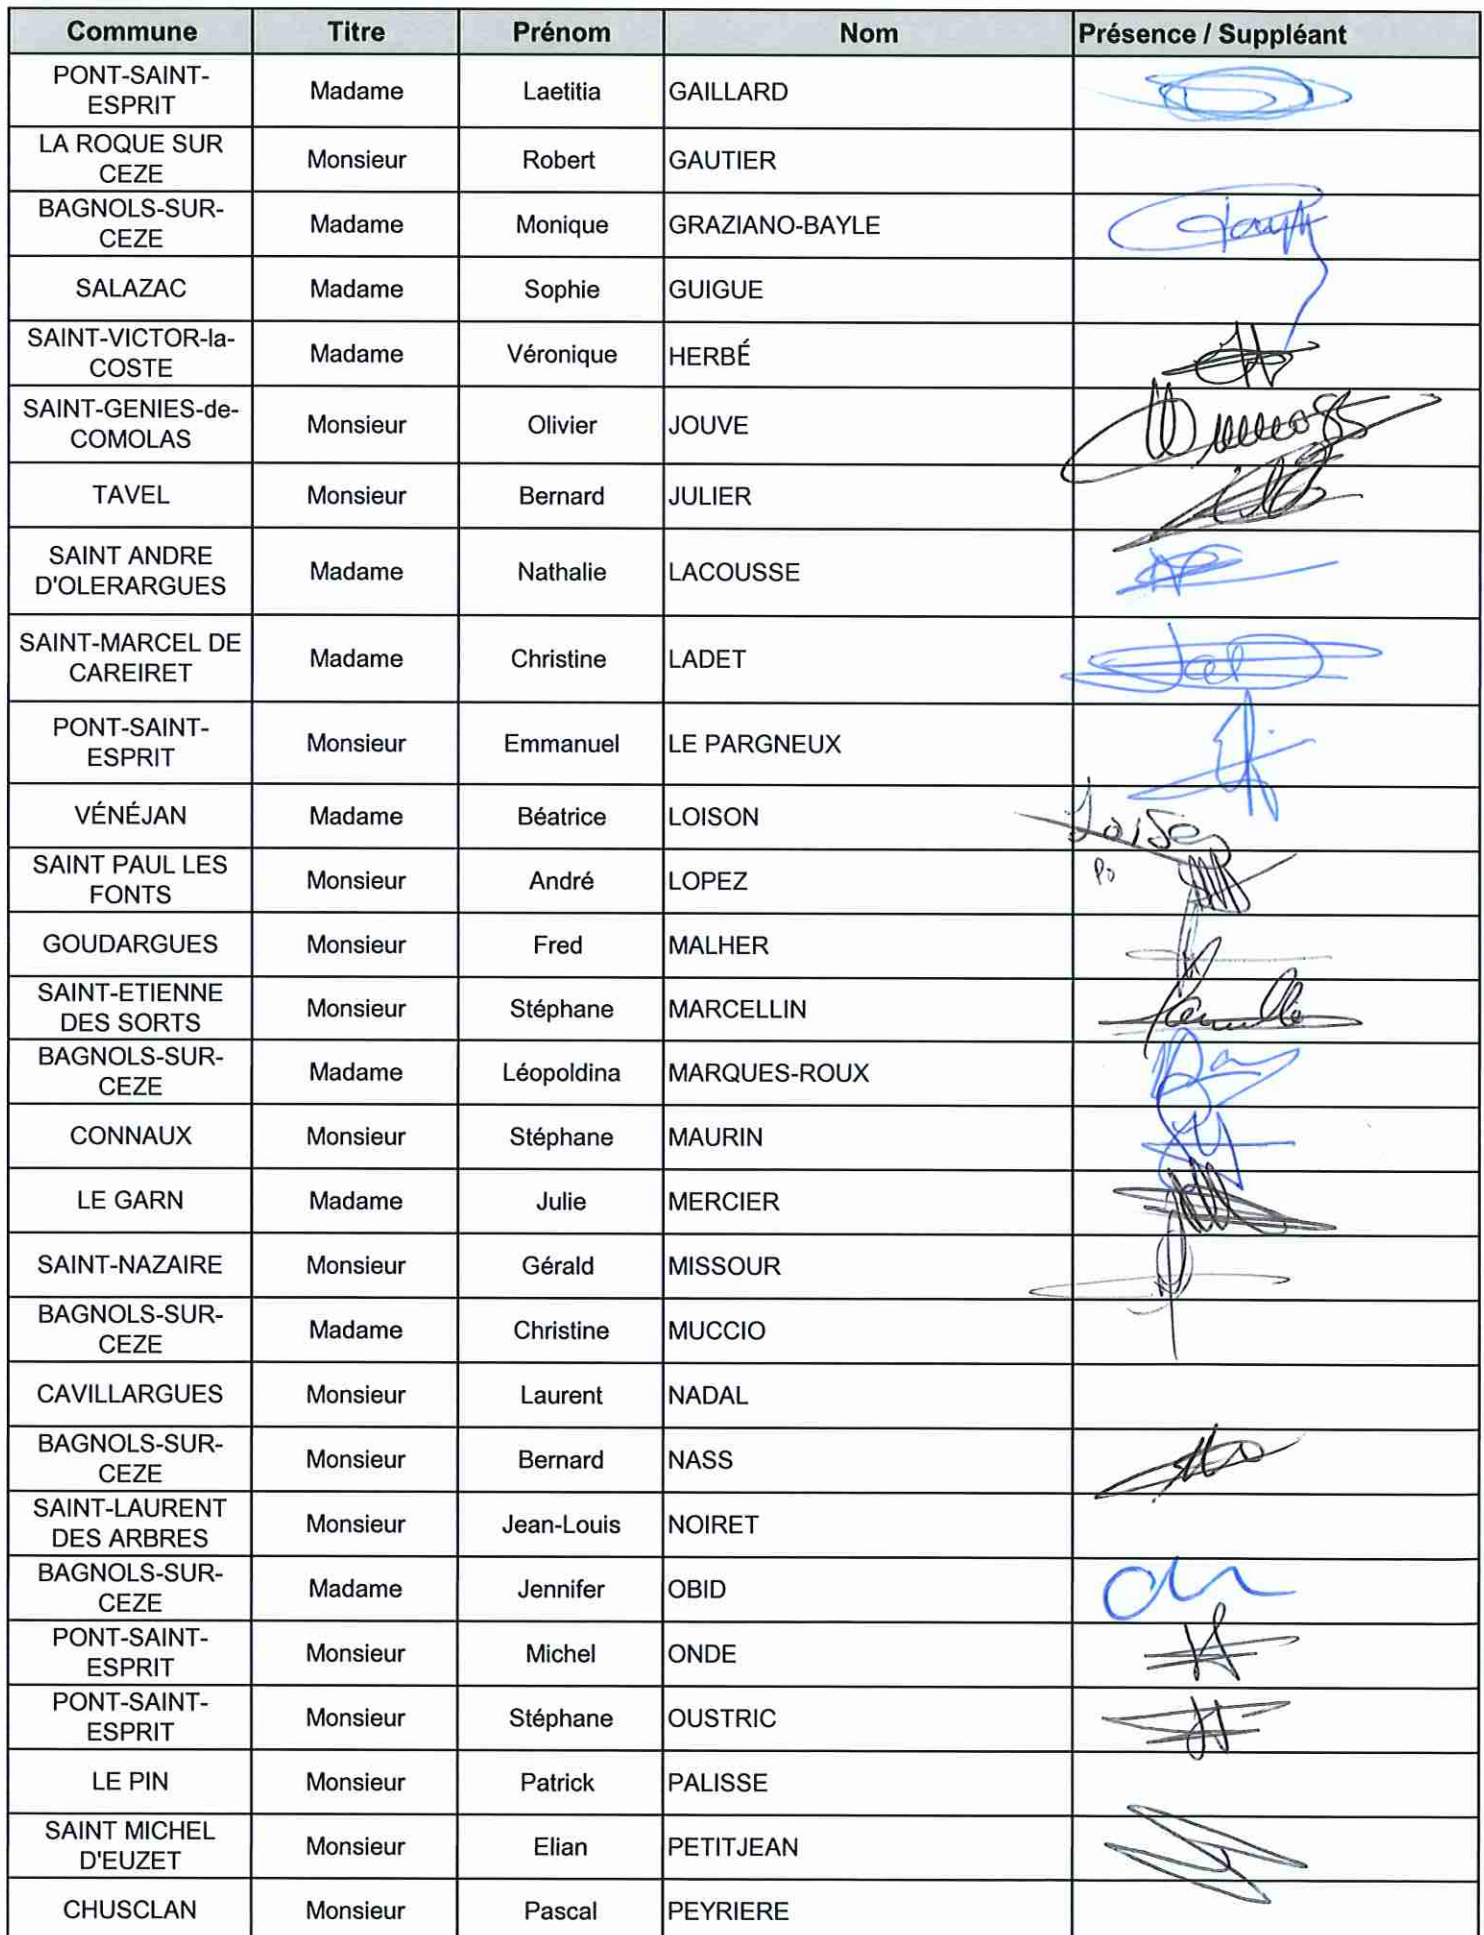 Commune Titre Prénom Nom Présence / Suppléant
PONT-SAINT-
ESPRIT Madame Laetitia GAILLARD
LA ROQUE SUR
CEZE Monsieur Robert GAUTIER
BAGNOLS-SUR-
CEZE Madame Monique GRAZIANO-BAYLE
SALAZAC Madame Sophie GUIGUE
SAINT-VICTOR-la-
COSTE Madame Véronique HERBÉ
SAINT-GENIES-de-
COMOLAS Monsieur Olivier JOUVE
TAVEL Monsieur Bernard JULIER
SAINT ANDRE
D'OLERARGUES Madame Nathalie LACOUSSE
SAINT-MARCEL DE
CAREIRET Madame Christine LADET
PONT-SAINT-
ESPRIT Monsieur Emmanuel LE PARGNEUX
VÉNÉJAN Madame Béatrice LOISON
SAINT PAUL LES
FONTS Monsieur André LOPEZ Po
GOUDARGUES Monsieur Fred MALHER
SAINT-ETIENNE
DES SORTS Monsieur Stéphane MARCELLIN
BAGNOLS-SUR-
CEZE Madame Léopoldina MARQUES-ROUX
CONNAUX Monsieur Stéphane MAURIN
LE GARN Madame Julie MERCIER
SAINT-NAZAIRE Monsieur Gérald MISSOUR
BAGNOLS-SUR-
CEZE Madame Christine MUCCIO
CAVILLARGUES Monsieur Laurent NADAL
BAGNOLS-SUR-
CEZE Monsieur Bernard NASS
SAINT-LAURENT
DES ARBRES Monsieur Jean-Louis NOIRET
BAGNOLS-SUR-
CEZE Madame Jennifer OBID
PONT-SAINT-
ESPRIT Monsieur Michel ONDE
PONT-SAINT-
ESPRIT Monsieur Stéphane OUSTRIC
LE PIN Monsieur Patrick PALISSE
SAINT MICHEL
D'EUZET Monsieur Elian PETITJEAN
CHUSCLAN Monsieur Pascal PEYRIERE